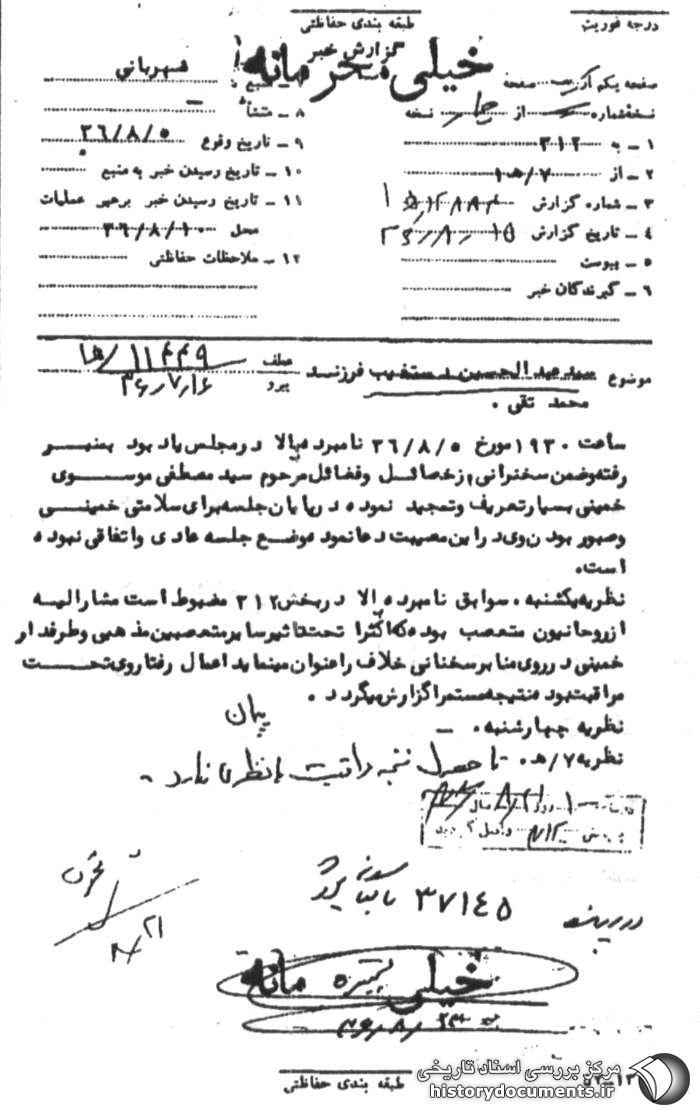 درجه فوریت
طبقه بندی حفاظتی
گزارش خبر
خیلی محرمانه
صفحه یکم از صفحه
نسخه شماره از چهار نسخه
۱ ـ به ۳۱۲
۲ ـ از ۷/ه‍ ۱
۳ ـ شماره گزارش
۴ ـ تاریخ گزارش ۳۶/۸/۱۵
۵ ـ پیوست
۶ ـ گیرندگان خبر
قهرمانی
۸ ـ منشأ ـ
۹ ـ تاریخ وقوع ۳۶/۸/۵
۱۰ ـ تاریخ رسیدن خبر به منبع
۱۱ ـ تاریخ رسیدن خبر برهبر عملیات
محل ۳۶/۸/۱۰
۱۲ ـ ملاحظات حفاظتی
موضوع سید عبدالحسین دستغیب فرزند
محمد تقی .
عطف
پیرو
۱۱۴۴۹/ه‍ ۱
۳۶/۷/۱۶
ساعت ۱۹۳۰ مورخ ۳۶/۸/۵ نامبرده بالا در مجلس یاد بود بمنبر
رفته وضمن سخنرانی از خصائل وفضائل مرحوم سید مصطفی موسوی
خمینی بسیار تعریف وتمجید نموده در پایان جلسه برای سلامتی خمینی
وصبور بودن وی در این مصیبت دعا نمود موضع جلسه عادی واتفاقی نبوده
است.
نظریه یکشنبه . سوابق نامبرده بالا در بخش ۳۱۲ مضبوط است مشارالیه
از روحانیون متعصب بوده که اکثرا تحت تاثیر سایر متعصبین مذهبی وطرفدار
خمینی در روی منابر سخنانی خلاف را عنوان مینماید اعمال رفتار وی تحت
مراقبت بوده نتیجه مستمرا گزارش میگردد .
نظریه چهارشنبه . ـ
نظریه ۷/ه‍ . تا حصول نتیجه مراقبت نظری ندارد .
۳۷۱۴۵
خیلی محرمانه
طبقه بندی حفاظتی
مرکز بررسی اسناد تاریخی
historydocuments.ir